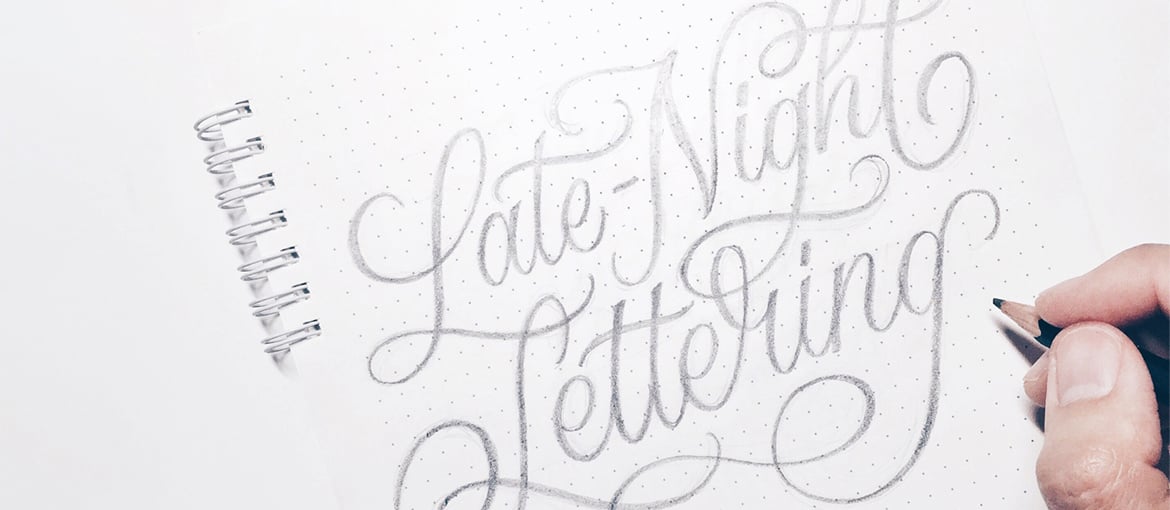 Late-Night
Lettering